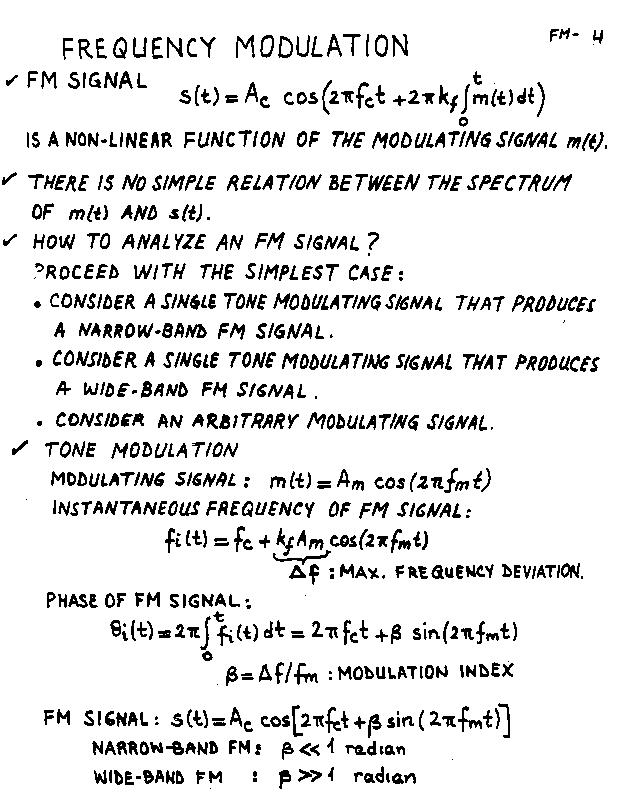 FM- 4
FREQUENCY MODULATION
✓ FM SIGNAL s(t) = A_c cos(2πf_ct + 2πk_f ∫_0^t m(t)dt)
IS A NON-LINEAR FUNCTION OF THE MODULATING SIGNAL m(t).
✓ THERE IS NO SIMPLE RELATION BETWEEN THE SPECTRUM
OF m(t) AND s(t).
✓ HOW TO ANALYZE AN FM SIGNAL?
PROCEED WITH THE SIMPLEST CASE:
• CONSIDER A SINGLE TONE MODULATING SIGNAL THAT PRODUCES
A NARROW-BAND FM SIGNAL.
• CONSIDER A SINGLE TONE MODULATING SIGNAL THAT PRODUCES
A WIDE-BAND FM SIGNAL.
• CONSIDER AN ARBITRARY MODULATING SIGNAL.
✓ TONE MODULATION
MODULATING SIGNAL: m(t) = A_m cos(2πf_mt)
INSTANTANEOUS FREQUENCY OF FM SIGNAL:
f_i(t) = f_c + k_fA_m cos(2πf_mt)
Δf : MAX. FREQUENCY DEVIATION.
PHASE OF FM SIGNAL:
θ_i(t) = 2π ∫_0^t f_i(t) dt = 2πf_ct + β sin(2πf_mt)
β = Δf/f_m : MODULATION INDEX
FM SIGNAL: s(t) = A_c cos[2πf_ct + β sin(2πf_mt)]
NARROW-BAND FM: β << 1 radian
WIDE-BAND FM : β >> 1 radian